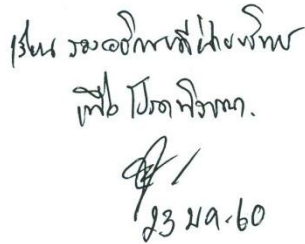 เรียน รองอธิการบดีฝ่ายบริหาร
เพื่อโปรดพิจารณา.
23 มค.60